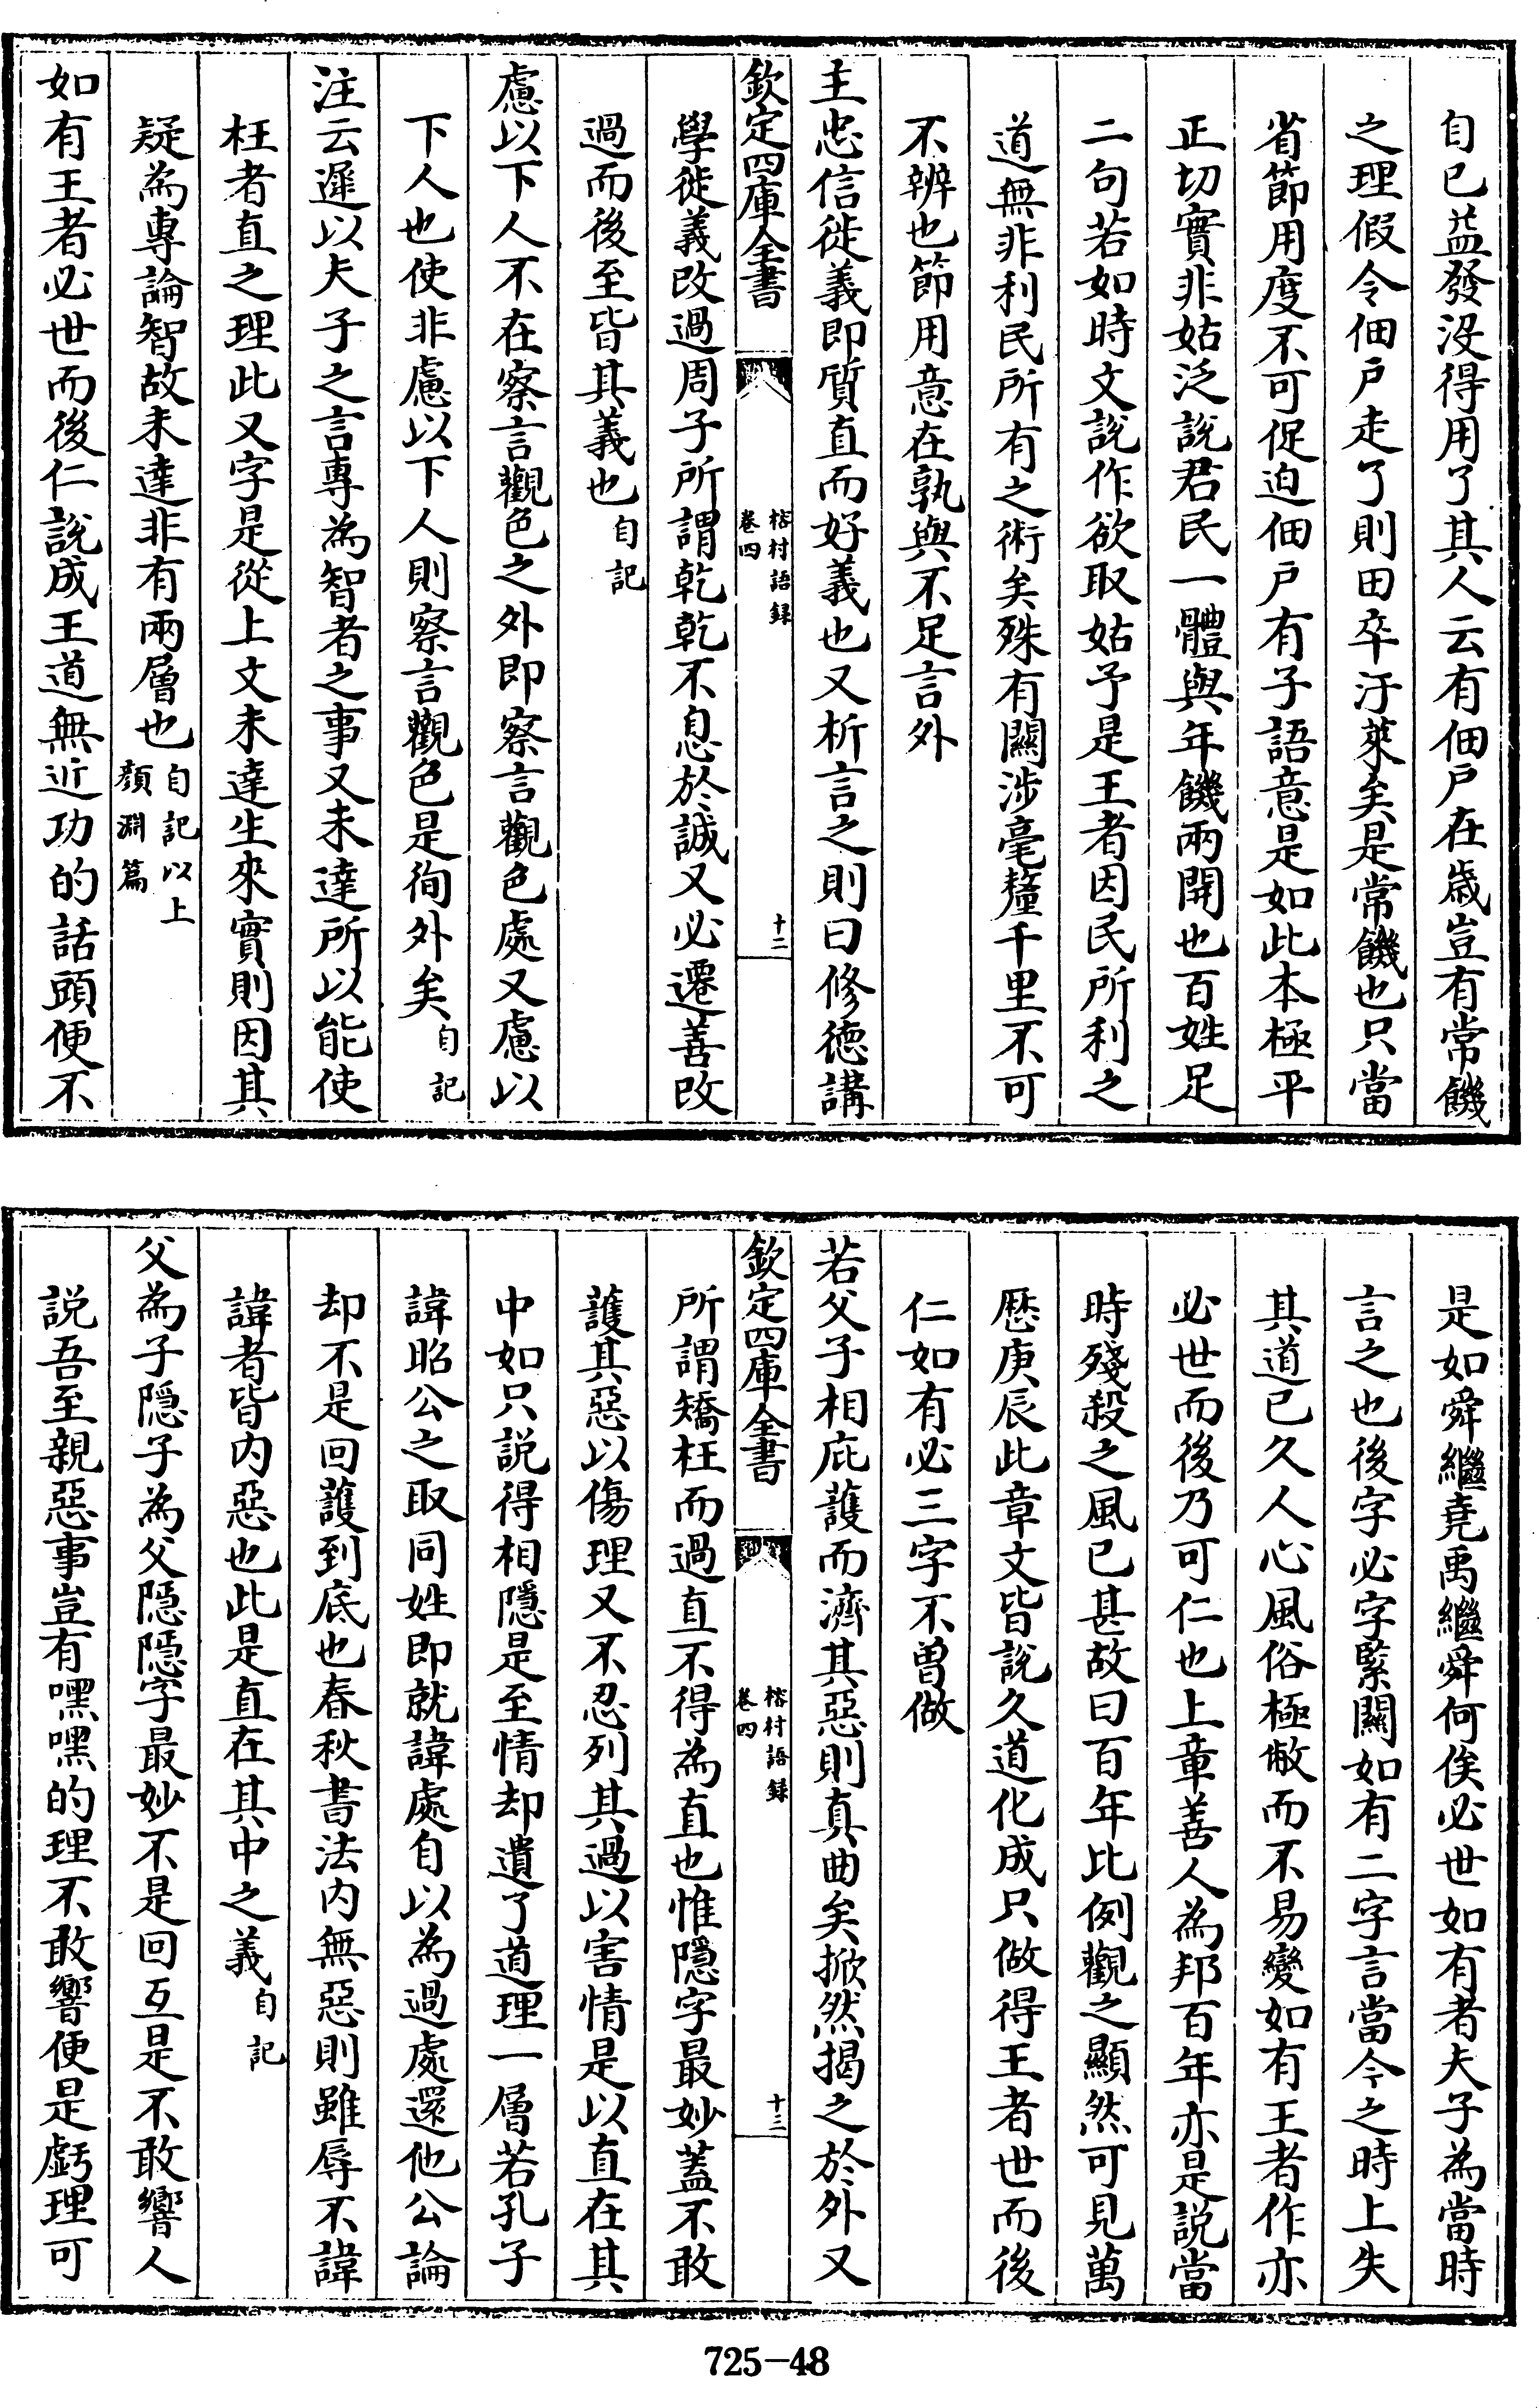 自已益發没得用了其人云有佃户在歲豈有常饑
之理假令佃户走了則田卒汙萊矣是常饑也只當
省節用度不可促迫佃户有子語意是如此本極平
正切實非姑泛說君民一體與年饑兩開也百姓足
二句若如時文說作欲取姑予是王者因民所利之
道無非利民所有之術矣殊有關涉毫釐千里不可
不辨也節用意在孰與不足言外
主忠信徙義即質直而好義也又析言之則曰修德講
欽定四庫全書
榕村語録
卷四
十二
學徙義改過周子所謂乾乾不息於誠又必遷善改
過而後至皆其義也自記
慮以下人不在察言觀色之外即察言觀色處又慮以
下人也使非慮以下人則察言觀色是徇外矣自記
注云遲以夫子之言專為智者之事又未達所以能使
枉者直之理此又字是從上文未達生來實則因其
疑為專論智故未達非有兩層也自記以上顔淵篇
如有王者必世而後仁說成王道無近功的話頭便不
是如舜繼堯禹繼舜何俟必世如有者夫子為當時
言之也後字必字緊關如有二字言當今之時上失
其道已久人心風俗極敝而不易變如有王者作亦
必世而後乃可仁也上章善人為邦百年亦是説當
時殘殺之風已甚故曰百年比例觀之顯然可見萬
厯庚辰此章文皆說久道化成只做得王者世而後
仁如有必三字不曽做
若父子相庇護而濟其惡則真曲矣掀然揭之於外又
欽定四庫全書
榕村語録
卷四
十三
所謂矯枉而過直不得為直也惟隱字最妙葢不敢
護其惡以傷理又不忍列其過以害情是以直在其
中如只説得相隱是至情却遺了道理一層若孔子
諱昭公之取同姓即就諱處自以為過處還他公論
却不是回護到底也春秋書法内無惡則雖辱不諱
諱者皆内惡也此是直在其中之義自記
父為子隱子為父隱隱字最妙不是回互是不敢響人
説吾至親惡事豈有嘿嘿的理不敢響便是虧理可
725-48